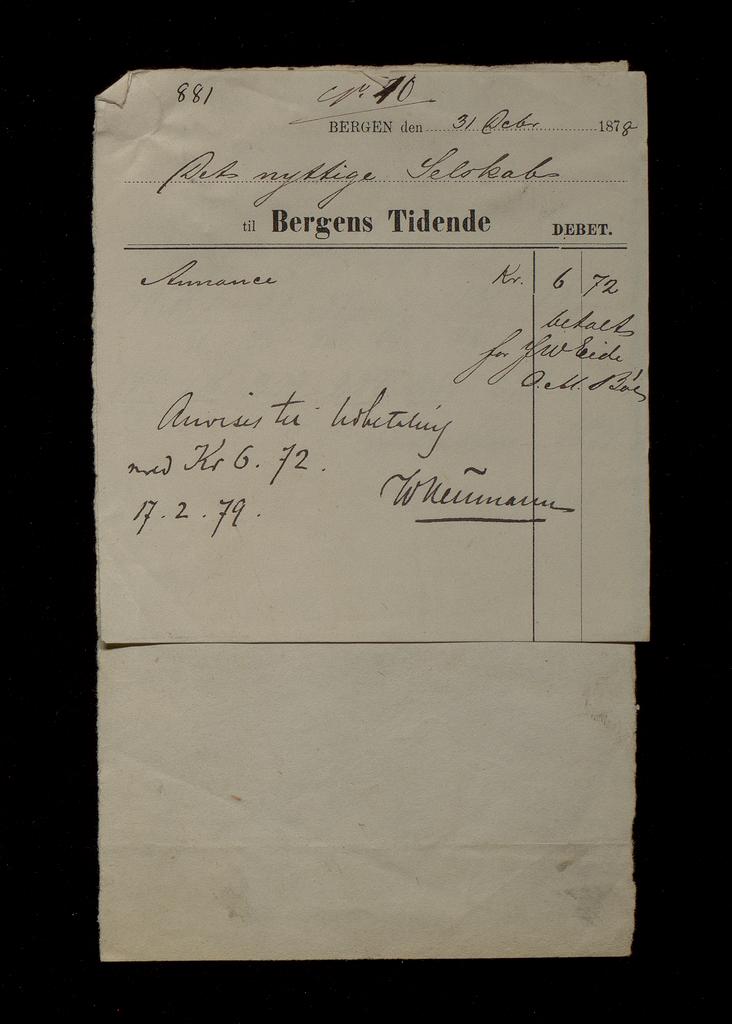 881
No 70
BERGEN den 31 Decbr 1878
Det nyttige Selskab
til Bergens Tidende DEBET.
Annonce Kr. 6 72
betalt
for J W Eide
O. M. Bøe
Anvises til Udbetaling
med Kr 6. 72.
17. 2. 79.
WNeumann